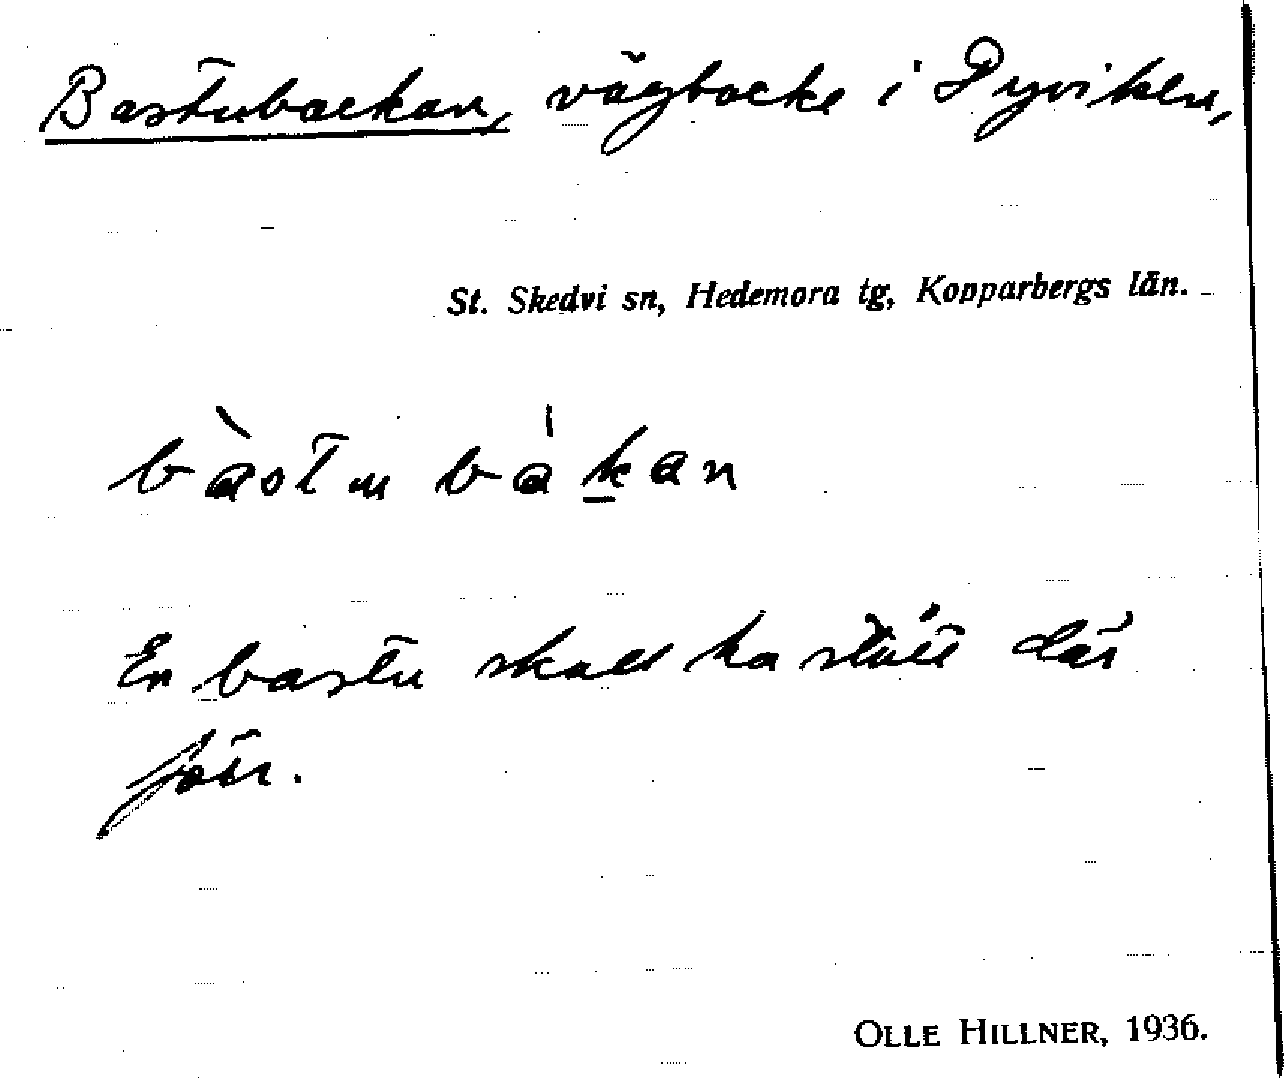 Bastubackan, vägbacke i Dyviken,
St. Skedvi sn, Hedemora tg, Kopparbergs län.
bàstu bákan
En bastu skall ha stått där
förr.
OLLE HILLNER, 1936.